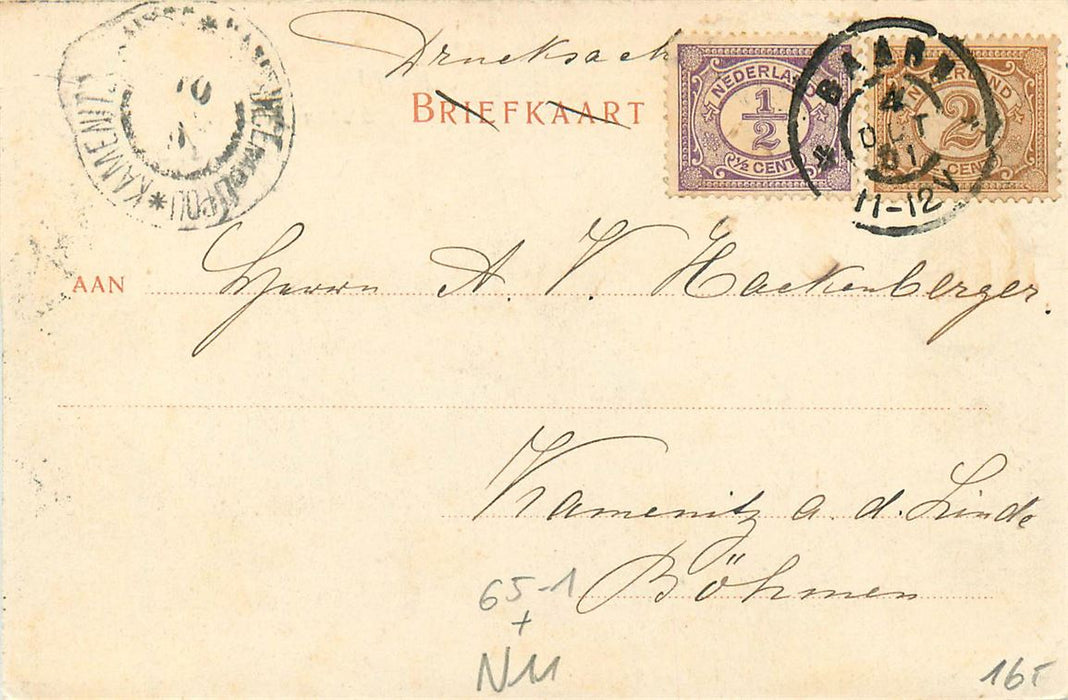 Drucksach
BRIEFKAART
NEDERLAND
1/2
1/2 CENT
2
CENT
BAARN
4
OCT
01
11-12V
KAMENITZ
KAMENICE
AAN Herrn A. V. Hackenberger.
Kamenitz a. d. Linde
Böhmen
65-1
+
NM
165